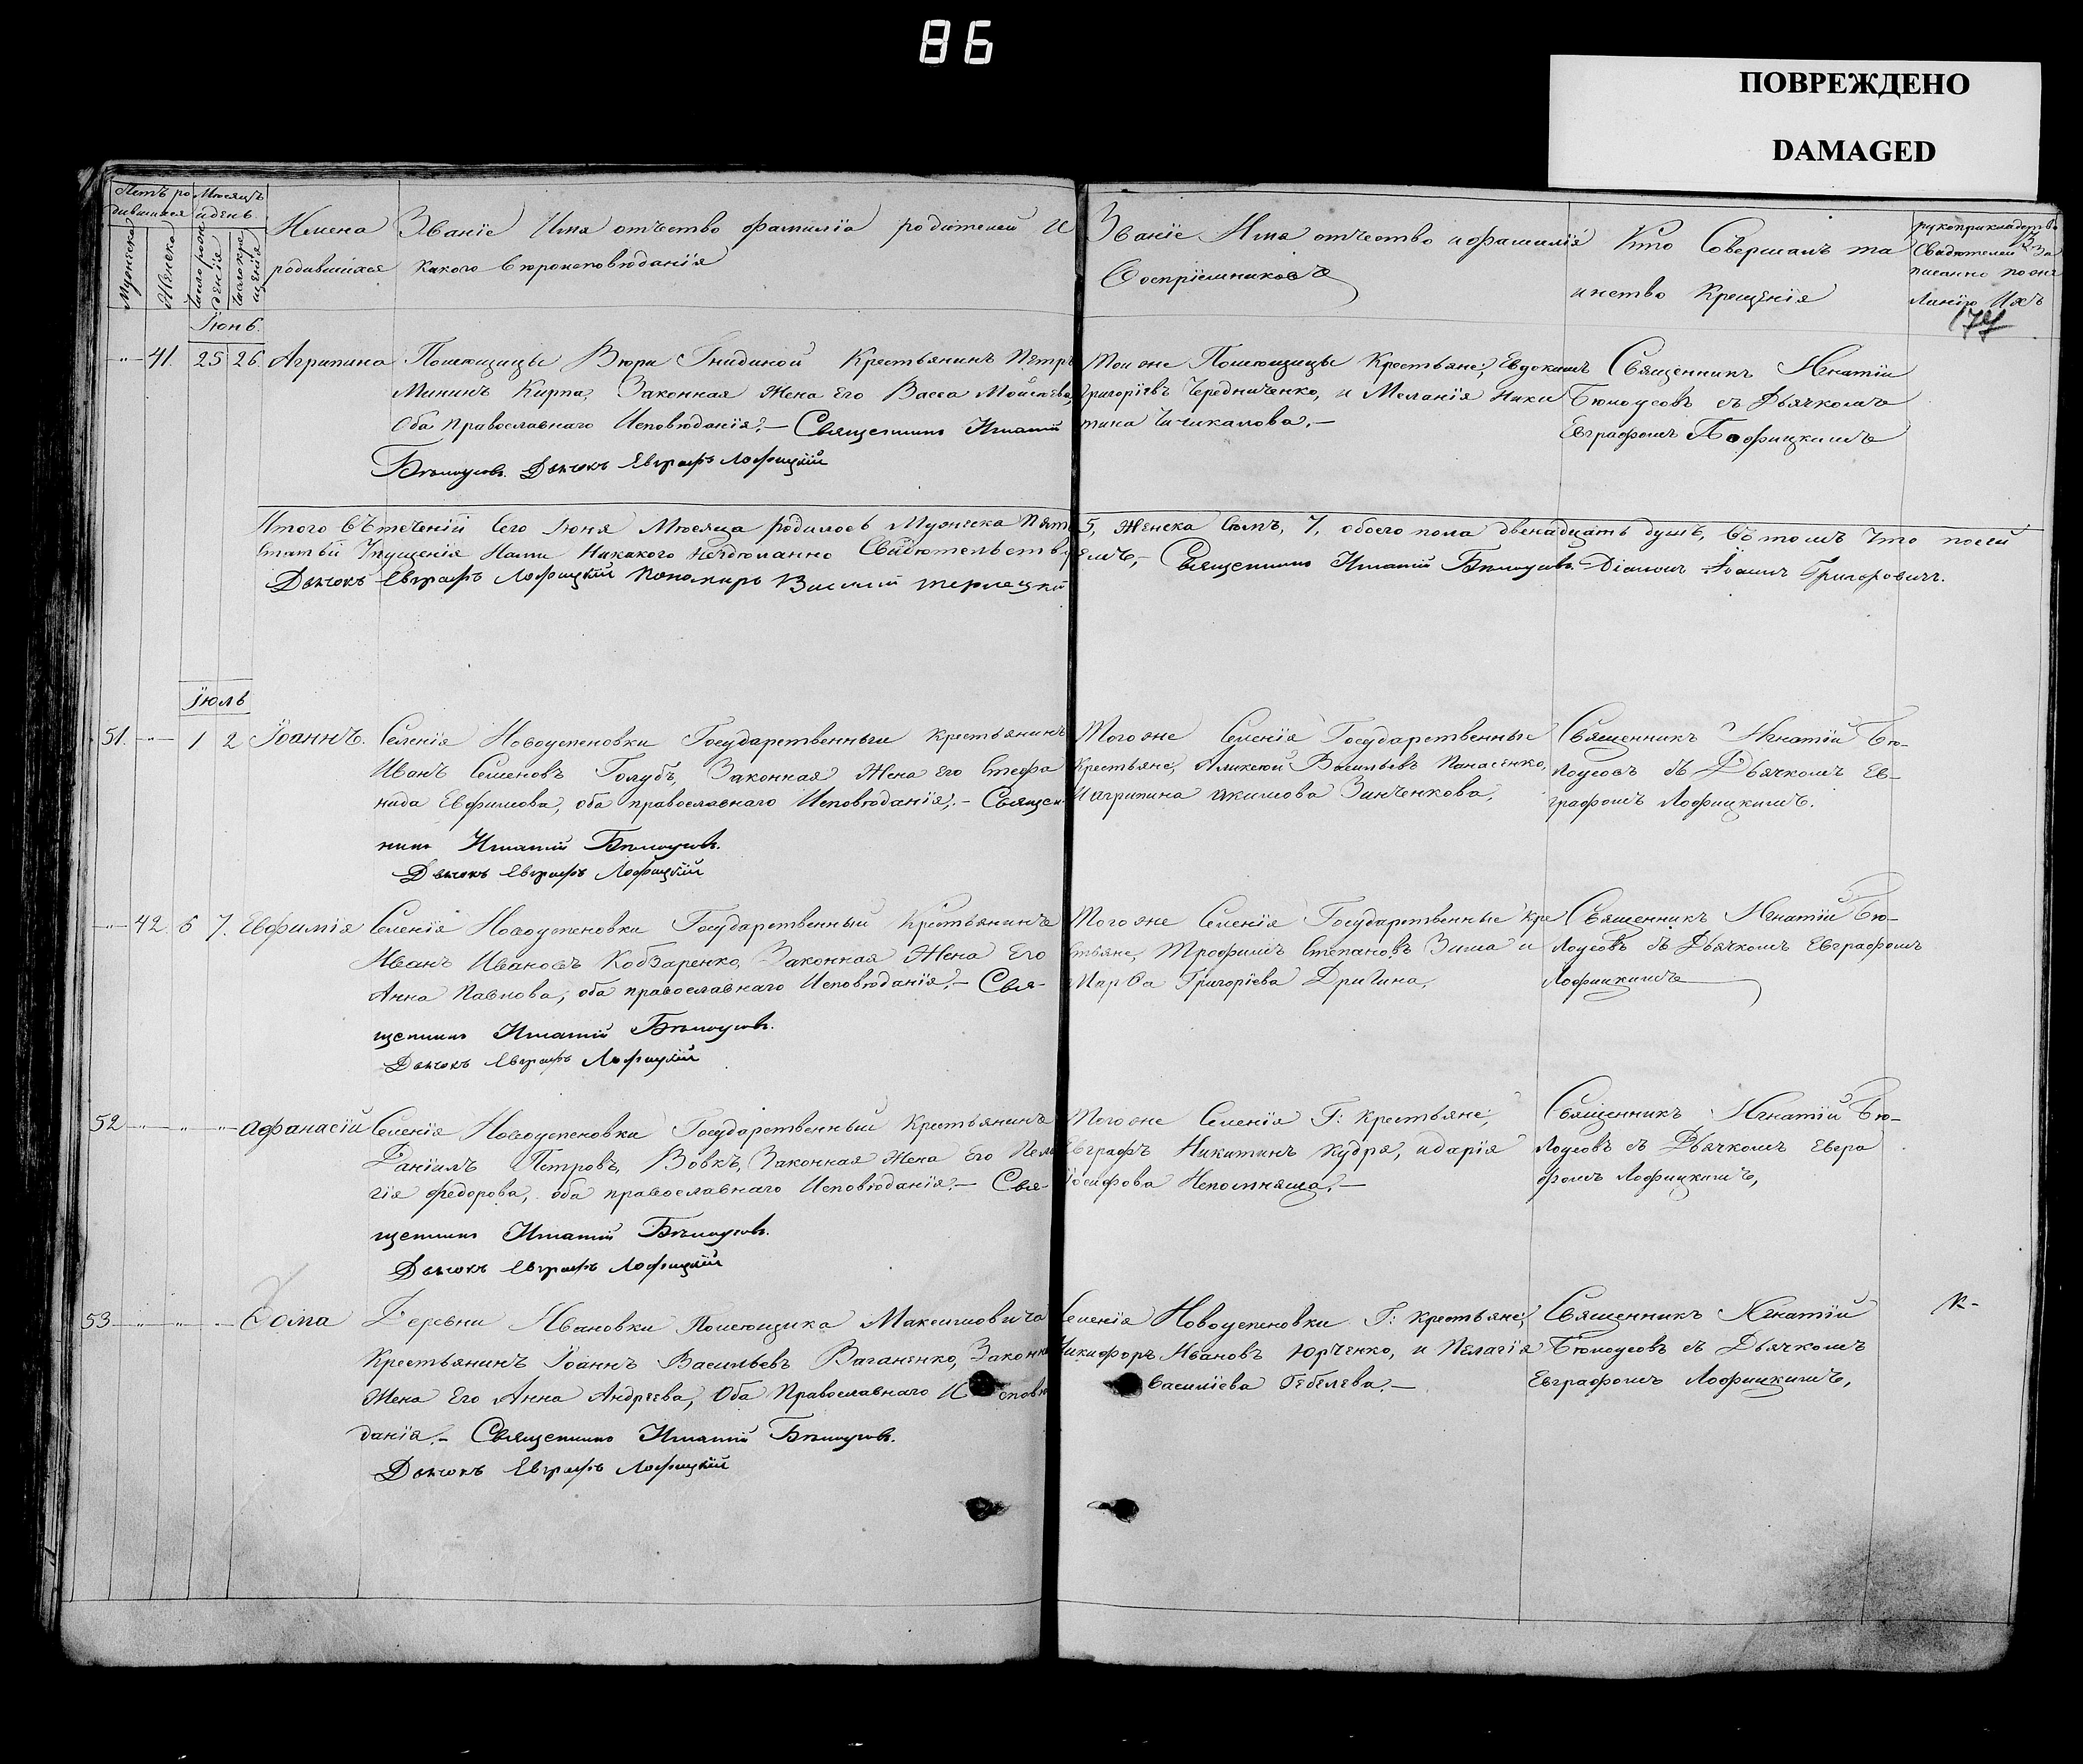 86
ПОВРЕЖДЕНО
DAMAGED
Счетъ ро
дившихся
Мѣсяцъ
и день
Мужеска
Женска
Число рож
денія
Число кре
щенія
Имена
родившихся
Званіе Имя отчество фамилія родителей И
какого вѣроисповѣданія
Званіе Имя отчество и фамилія
Воспріемниковъ
Кто Совершалъ та
инство Крещенія
рукоприкладство
Свидѣтелей За
писанно по же
ланію Ихъ
Іюнь.
41. 25 26. Агрипина Помѣщицы Вѣры Гнидиной Крестьянинъ Петръ
Мининъ Кирпа, Законная Жена Его Васса Мойсеева,
Оба Православнаго Исповѣданія. – Священникъ Игнатій
Бѣлоусовъ. Дьячокъ Евграфъ Лофицкій
Той же Помѣщицы Крестьяне; Евдокимъ
Григоріевъ Чередниченко, и Меланія Ники
тина Чичикалова. –
Священникъ Игнатій
Бѣлоусовъ съ Дьячкомъ
Евграфомъ Лофицкимъ
Итого Въ теченій Сего Іюня Мѣсяца родилось Мужеска Пять 5, Женска Семъ, 7, обоего пола двенадцать душъ, Въ томъ Что по сей
Статьи Упущенія Нами Никакого Несдѣланно Свидѣтельствуемъ, – Священникъ Игнатій Бѣлоусовъ. Діаконъ Іоаннъ Григоровичъ.
Дьячокъ Евграфъ Лофицкій Пономаръ Василій Терлецкій
Іюль
51. 1 2 Іоаннъ. Селенія Новоуспеновки Государственный крестьянинъ
Иванъ Семеновъ Голубъ, Законная Жена Его Стефа
нида Евфимова, оба православнаго Исповѣданія. – Священ
никъ Игнатій Бѣлоусовъ.
Дьячокъ Евграфъ Лофицкій
Того же Селенія Государственные
Крестьяне, Аликсѣй Васильевъ Панасенко,
И агрипина якимова Зинченкова,
Священникъ Игнатій Бѣ–
лоусовъ съ Дьячкомъ Ев–
графомъ Лофицкимъ.
42 6 7. Евфимія Селенія Новоуспеновки Государственный Крестьянинъ
Иванъ Ивановъ Кобзаренко, Законная Жена Его
Анна Павлова, оба православнаго Исповѣданія. – Свя–
щенникъ Игнатій Бѣлоусовъ.
Дьячокъ Евграфъ Лофицкій
Того же Селенія Государственные Кре
стьяне, Трофимъ Степановъ Зима и
Марѳа Григоріева Дригина,
Священникъ Игнатій Бѣ–
лоусовъ съ Дьячкомъ Евграфомъ
Лофицкимъ
52 Афанасій Селенія Новоуспеновки Государственный Крестьянинъ
Даніилъ Петровъ, Вовкъ, Законная Жена Его Пела
гія Федорова, оба православнаго Исповѣданія. – Свя–
щенникъ Игнатій Бѣлоусовъ.
Дьячокъ Евграфъ Лофицкій
Того же Селенія Г: Крестьяне;
Евграфъ Никитинъ Кудря, и дарія
Іосифова Непомняща. –
Священникъ Игнатій Бѣ–
лоусовъ съ Дьячкомъ Евгра
фомъ Лофицкимъ,
53 Ѳома Деревни Ивановки Помѣщика Максимовича
Крестьянинъ Іоаннъ Васильевъ Ваганенко, Законная
Жена Его Анна Андреева, Оба Православнаго Исповѣ
данія. – Священникъ Игнатій Бѣлоусовъ.
Дьячокъ Евграфъ Лофицкій
Селенія Новоуспеновки Г: крестьяне;
Никифоръ Ивановъ Юрченко, и Пелагія
Василіева Гебелева. –
Священникъ Игнатій
Бѣлоусовъ съ Дьячкомъ
Евграфомъ Лофицкимъ,